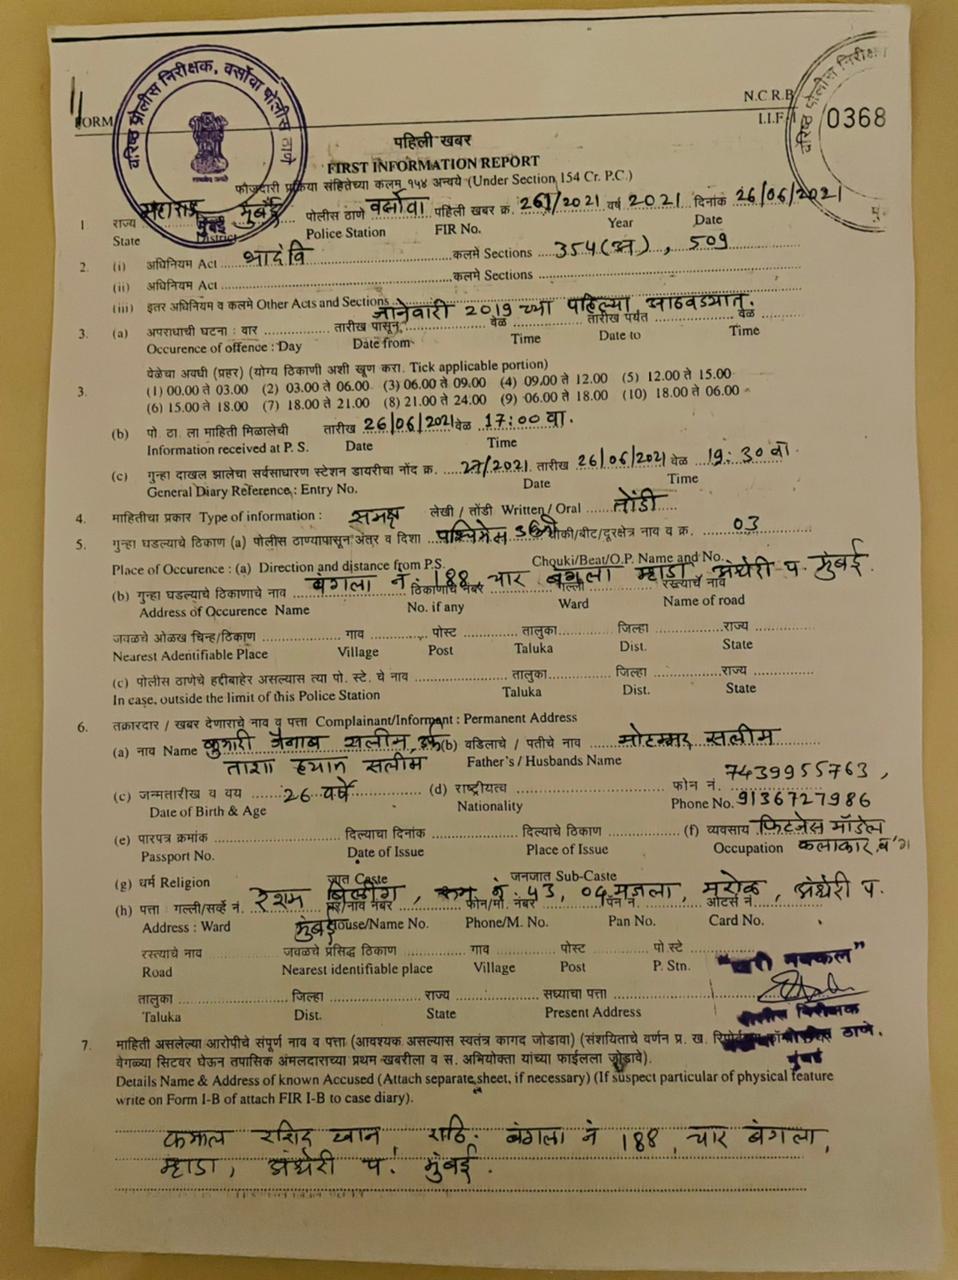 वरिष्ठ पोलीस निरीक्षक, वर्सोवा पोलीस ठाणे
सत्यमेव जयते
वरिष्ठ पोलीस निरीक्षक
FORM
N.C.R.B
I.I.F.-I
0368
पहिली खबर
FIRST INFORMATION REPORT
फौजदारी प्रक्रिया संहितेच्या कलम १५४ अन्वये (Under Section 154 Cr. P.C.)
1. राज्य महाराष्ट्र मुंबई पोलीस ठाणे वर्सोवा पहिली खबर क्र. 261/2021 वर्ष 2021 दिनांक 26/06/2021
State District Police Station FIR No. Year Date
मुंबई
2. (i) अधिनियम Act भादंवि कलमे Sections 354(अ), 509
(ii) अधिनियम Act कलमे Sections
(iii) इतर अधिनियम व कलमे Other Acts and Sections
जानेवारी 2019 च्या पहिल्या आठवड्यात.
3. (a) अपराधाची घटना : वार तारीख पासून वेळ तारीख पर्यंत वेळ
Occurence of offence : Day Date from Time Date to Time
वेळेचा अवधी (प्रहर) (योग्य ठिकाणी अशी खूण करा. Tick applicable portion)
3. (1) 00.00 ते 03.00 (2) 03.00 ते 06.00 (3) 06.00 ते 09.00 (4) 09.00 ते 12.00 (5) 12.00 ते 15.00
(6) 15.00 ते 18.00 (7) 18.00 ते 21.00 (8) 21.00 ते 24.00 (9) 06.00 ते 18.00 (10) 18.00 ते 06.00
(b) पो. ठा. ला माहिती मिळालेची तारीख 26/06/2021 वेळ 17:00 वा.
Information received at P. S. Date Time
(c) गुन्हा दाखल झालेचा सर्वसाधारण स्टेशन डायरीचा नोंद क्र. 27/2021 तारीख 26/06/2021 वेळ 19:30 वा.
General Diary Reference : Entry No. Date Time
4. माहितीचा प्रकार Type of information : समक्ष लेखी / तोंडी Written / Oral तोंडी
5. गुन्हा घडल्याचे ठिकाण (a) पोलीस ठाण्यापासून अंतर व दिशा पश्चिमेस चौकी/बीट/दूरक्षेत्र नाव व क्र. 03
Place of Occurence : (a) Direction and distance from P.S. Chouki/Beat/O.P. Name and No.
बंगला नं. 188, चार बंगला म्हाडा, अंधेरी प. मुंबई.
(b) गुन्हा घडल्याचे ठिकाणाचे नाव ठिकाणाचे नंबर गल्ली रस्त्याचे नाव
Address of Occurence Name No. if any Ward Name of road
जवळचे ओळख चिन्ह/ठिकाण गाव पोस्ट तालुका जिल्हा राज्य
Nearest Adentifiable Place Village Post Taluka Dist. State
(c) पोलीस ठाणेचे हद्दीबाहेर असल्यास त्या पो. स्टे. चे नाव तालुका जिल्हा राज्य
In case, outside the limit of this Police Station Taluka Dist. State
6. तक्रारदार / खबर देणाराचे नाव व पत्ता Complainant/Informent : Permanent Address
(a) नाव Name कुमारी जैनाब सलीम उर्फ (b) वडिलाचे / पतीचे नाव मोहम्मद सलीम
ताशा हयान सलीम Father's / Husbands Name
7439955763,
(c) जन्मतारीख व वय 26 वर्षे (d) राष्ट्रीयत्व फोन नं.
Date of Birth & Age Nationality Phone No. 9136727986
(e) पारपत्र क्रमांक दिल्याचा दिनांक दिल्याचे ठिकाण (f) व्यवसाय फिटनेस मॉडेल
Passport No. Date of Issue Place of Issue Occupation कलाकार व
(g) धर्म Religion जात Caste जनजात Sub-Caste
रेशम बिल्डींग, रूम नं. 43, 04 मजला, मरोळ, अंधेरी प.
(h) पत्ता गल्ली/सर्व्हे नं. घर/नाव नंबर फोन/मो. नंबर पॅन नं. ओटर्स नं.
Address : Ward मुंबई House/Name No. Phone/M. No. Pan No. Card No.
रस्त्याचे नाव जवळचे प्रसिद्ध ठिकाण गाव पोस्ट पो.स्टे
Road Nearest identifiable place Village Post P. Stn.
"खरी नक्कल"
तालुका जिल्हा राज्य सध्याचा पत्ता
Taluka Dist. State Present Address
पोलीस निरीक्षक
पोलीस ठाणे.
मुंबई
7. माहिती असलेल्या आरोपीचे संपूर्ण नाव व पत्ता (आवश्यक असल्यास स्वतंत्र कागद जोडावा) (संशयिताचे वर्णन प्र. ख.
वेगळ्या सिटवर घेऊन तपासिक अंमलदाराच्या प्रथम खबरीला व स. अभियोक्ता यांच्या फाईलला जोडावे).
Details Name & Address of known Accused (Attach separate sheet, if necessary) (If suspect particular of physical feature
write on Form I-B of attach FIR I-B to case diary).
कमाल रशिद खान, राठि. बंगला नं 188, चार बंगला,
म्हाडा, अंधेरी प. मुंबई.